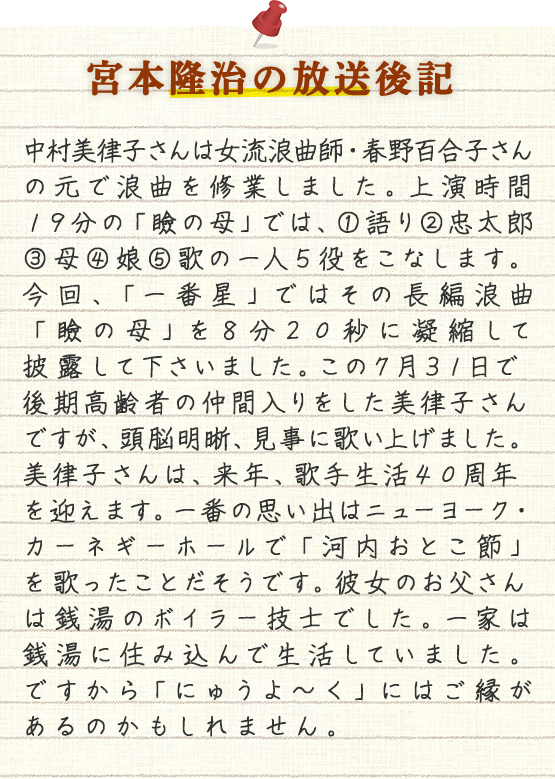 宮本隆治の放送後記
中村美律子さんは女流浪曲師・春野百合子さん
の元で浪曲を修業しました。上演時間
19分の「瞼の母」では、①語り②忠太郎
③母④娘⑤歌の一人5役をこなします。
今回、「一番星」ではその長編浪曲
「瞼の母」を8分20秒に凝縮して
披露して下さいました。この7月31日で
後期高齢者の仲間入りをした美律子さん
ですが、頭脳明晰、見事に歌い上げました。
美律子さんは、来年、歌手生活40周年
を迎えます。一番の思い出はニューヨーク・
カーネギーホールで「河内おとこ節」
を歌ったことだそうです。彼女のお父さん
は銭湯のボイラー技士でした。一家は
銭湯に住み込んで生活していました。
ですから「にゅうよ～く」にはご縁が
あるのかもしれません。